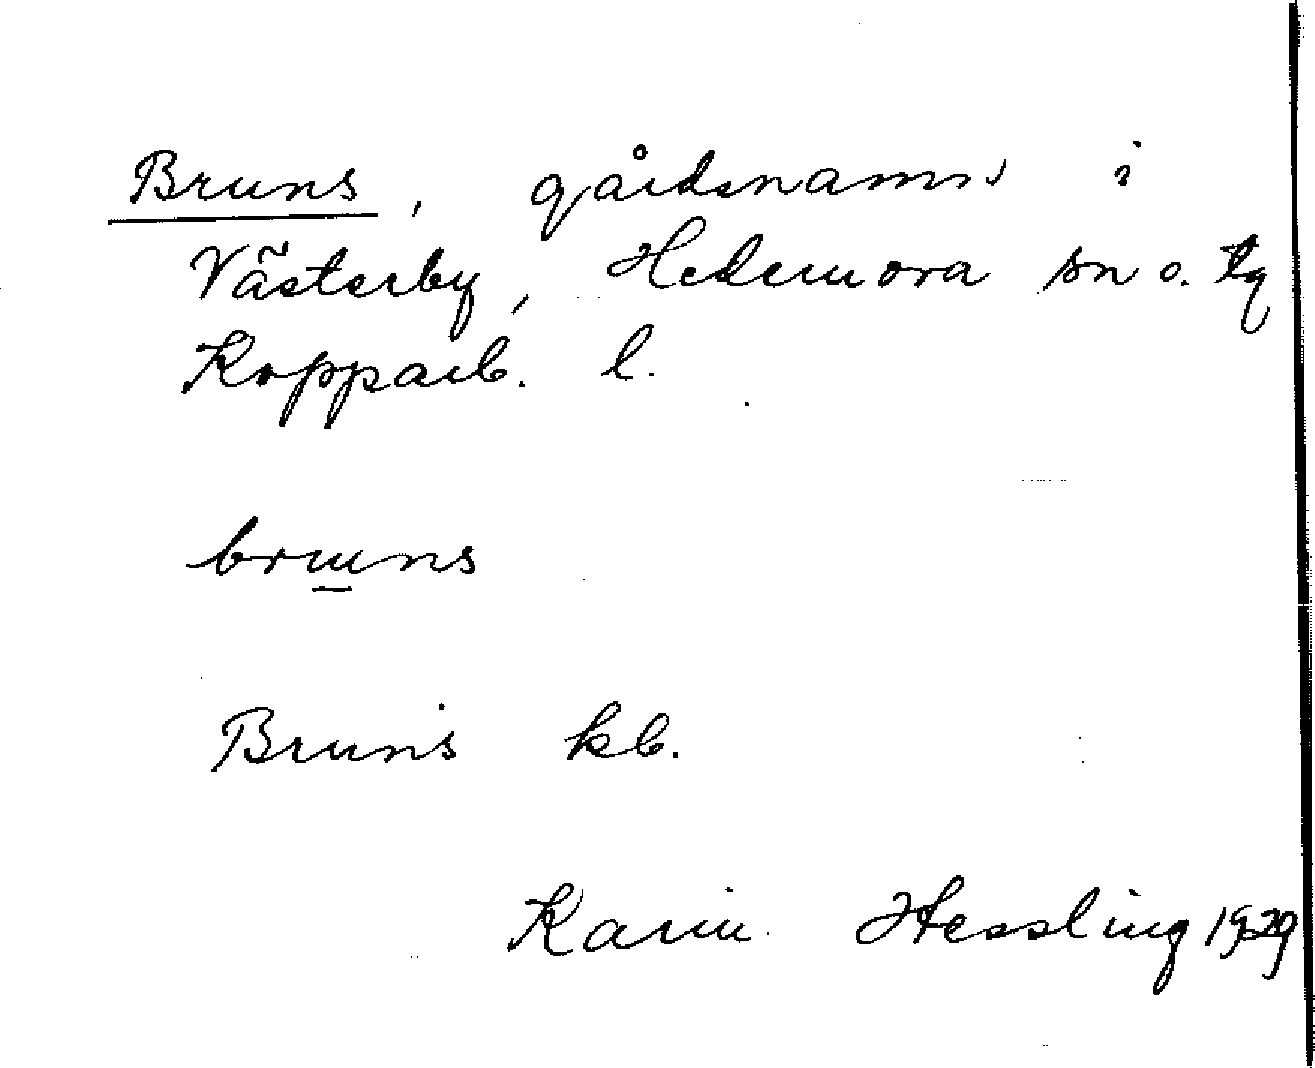 Bruns, gårdsnamn i
Västerby, Hedemora sn o. tg
Kopparb. l.
bruns
Bruns kb.
Karin Hessling 1929